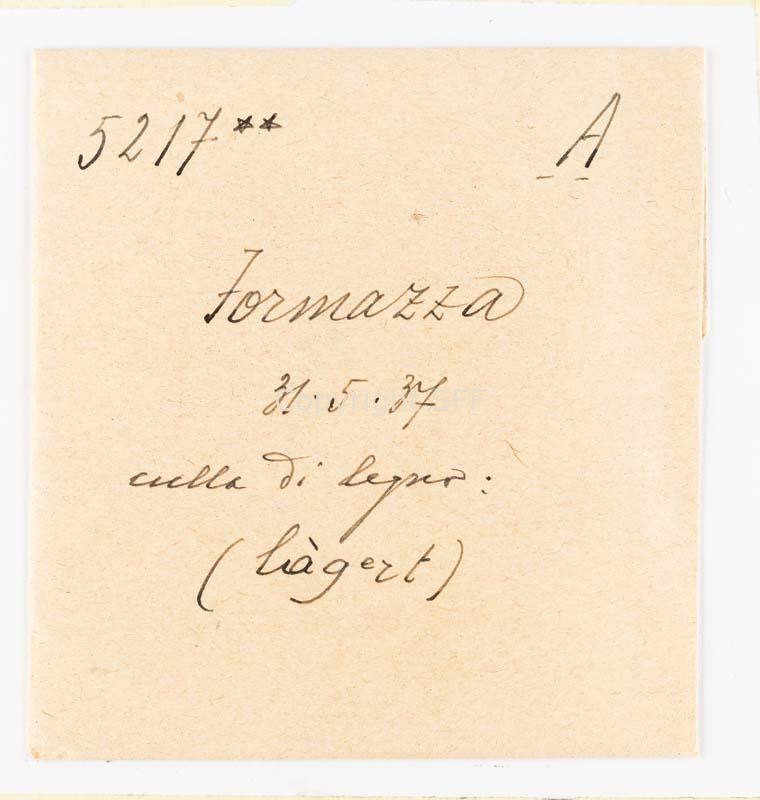 5217** A
Formazza
31.5.37
culla di legno:
(làgert)